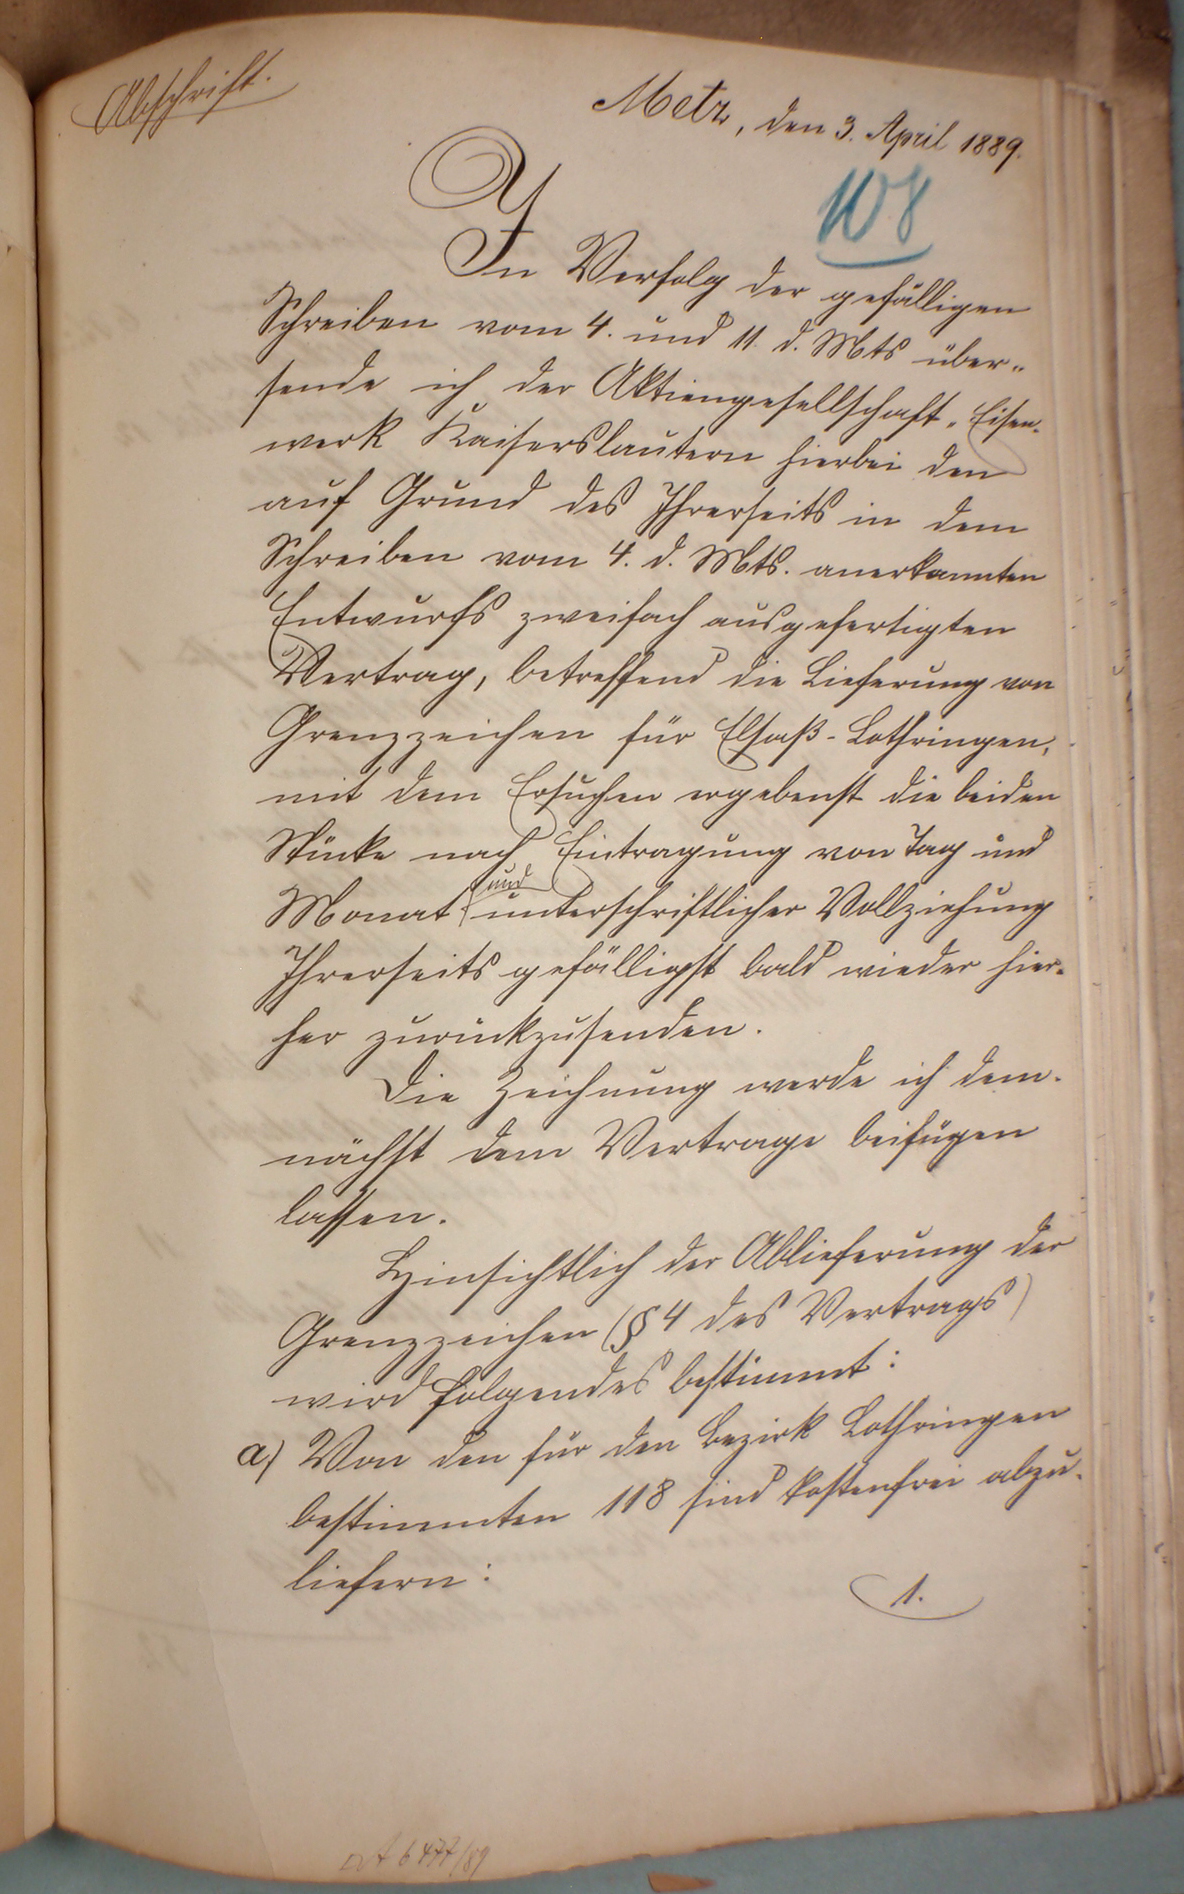 Abschrift.
Metz, den 3. April 1889.
108
In Verfolg der gefälligen
Schreiben vom 4. und 11. d. Mts über-
sende ich der Aktiengesellschaft „Eisen-
werk Kaiserslautern hierbei den
auf Grund des Ihrerseits in dem
Schreiben vom 4. d. Mts. anerkannten
Entwurfs zweifach ausgefertigten
Vertrag, betreffend die Lieferung von
Grenzzeichen für Elsaß-Lothringen,
mit dem Ersuchen ergebenst die beiden
Stücke nach Eintragung von Tag und
Monat und unterschriftlicher Vollziehung
Ihrerseits gefälligst bald wieder hier-
her zurückzusenden.
Die Zeichnung werde ich dem-
nächst dem Vertrage beifügen
lassen.
Hinsichtlich der Ablieferung der
Grenzzeichen (§ 4 des Vertrags)
wird folgendes bestimmt:
a) Von den für den Bezirk Lothringen
bestimmten 118 sind kostenfrei abzu-
liefern:
1.
6477/89